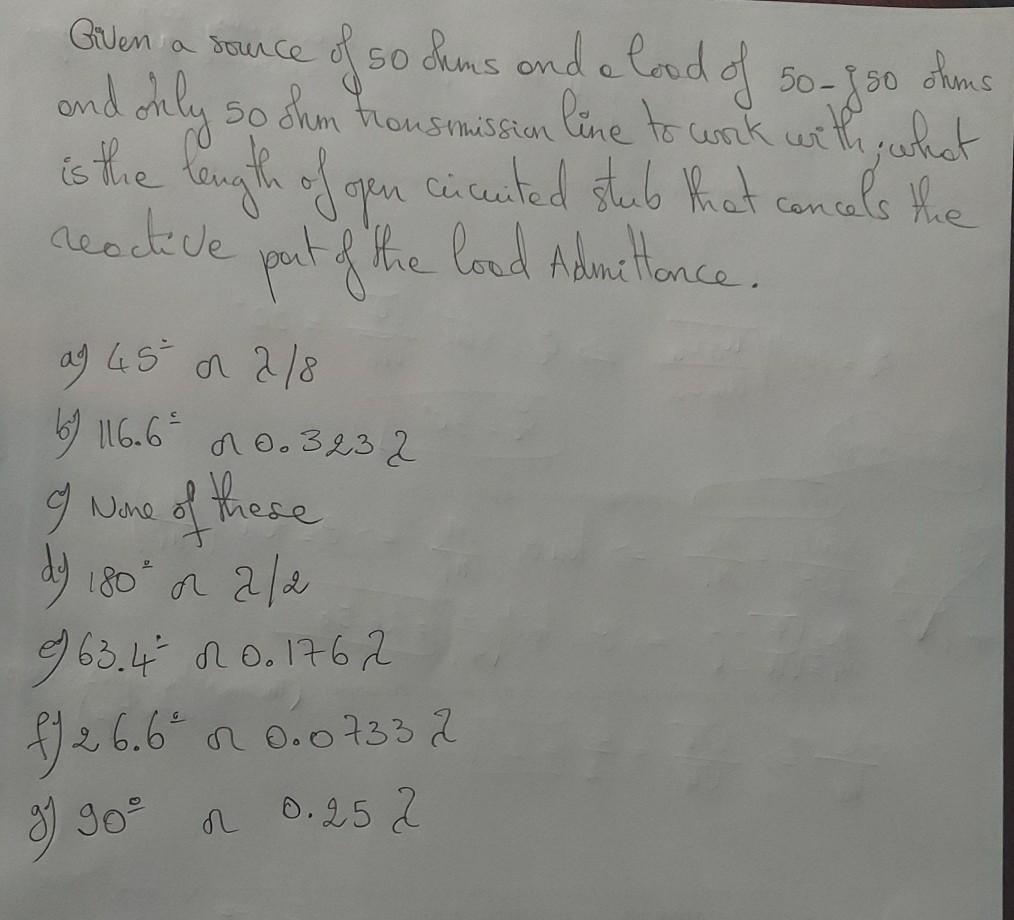 Given a source of 50 ohms and a load of 50-j50 ohms
and only 50 ohm transmission line to work with; what
is the length of open circuited stub that cancels the
reactive part of the load Admittance.
a) 45° or λ/8
b) 116.6° or 0.323 λ
c) None of these
d) 180° or λ/2
e) 63.4° or 0.176 λ
f) 26.6° or 0.0733 λ
g) 90° or 0.25 λ